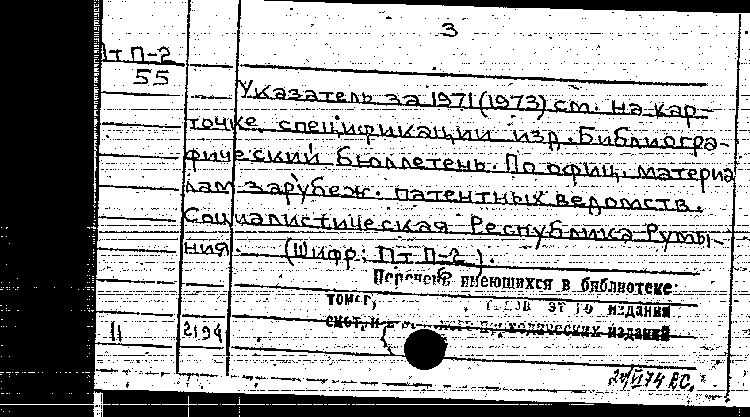 3
Пт П-2
55
Указатель за 1971 (1973) см. на кар-
точке спецификации изд. Библиогра-
фический бюллетень. По офиц. материа
лам зарубеж. патентных ведомств.
Социалистическая Республика Румы-
ния. (Шифр: Пт П-2 ).
Перечень имеющихся в библиотеке
томов, этого издания
смотри периодических изданий
11 2194